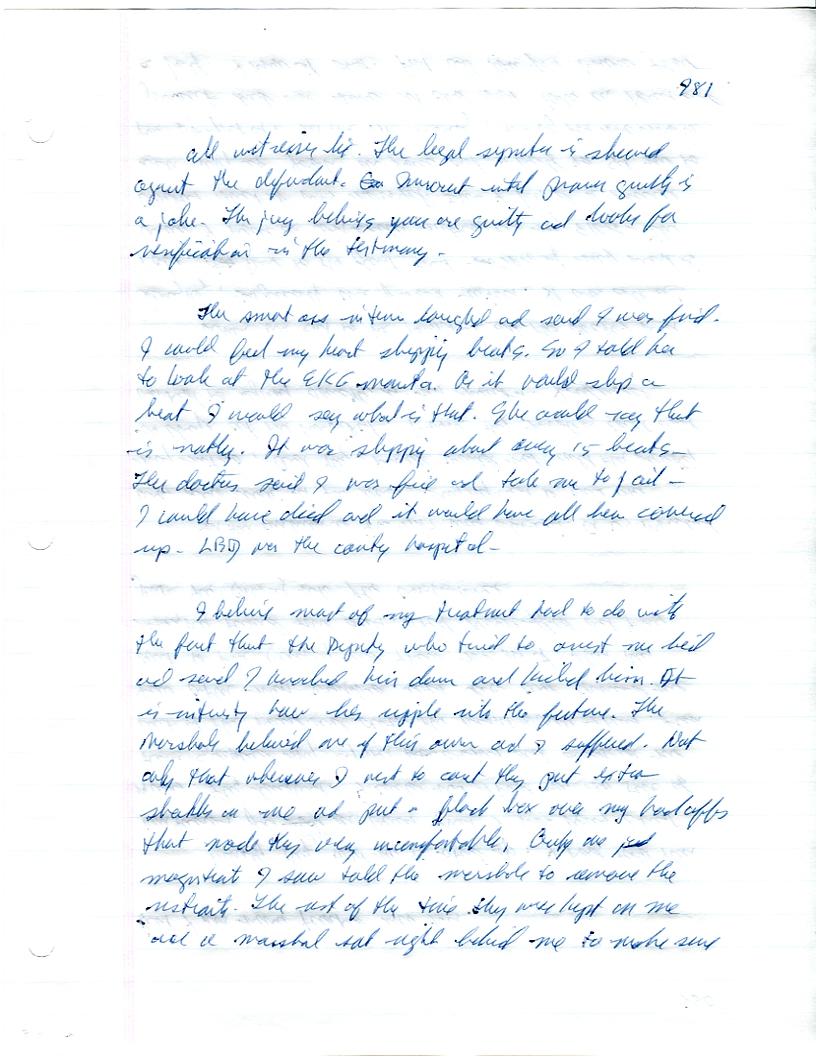 981
all witnesses lie. The legal system is skewed
against the defendant. Innocent until proven guilty is
a joke. The jury believes you are guilty and looks for
verification in the testimony.
The smart ass intern laughed and said I was fine.
I could feel my heart skipping beats. So I told her
to look at the EKG monitor. As it would skip a
beat I would say what is that. She would say that
is nothing. It was skipping about every 15 beats.
The doctors said I was fine and take me to jail -
I could have died and it would have all been covered
up - LBJ was the county hospital -
I believe most of my treatment had to do with
the fact that the Deputy who tried to arrest me lied
and said I knocked him down and kicked him. It
is interesting how lies ripple into the future. The
Marshals believed one of their own and I suffered. Not
only that whenever I went to court they put extra
shackles on me and put a black box over my handcuffs
that made them very uncomfortable. Only one
magistrate I saw told the marshals to remove the
restraints. The rest of the time they were kept on me
and a marshal sat right behind me to make sure